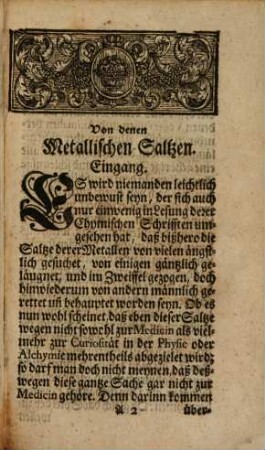 Von denen
Metallischen Saltzen.
Eingang.
ES wird niemanden leichtlich
unbewust seyn, der sich auch
nur ein wenig in Lesung derer
Chymischen Schrifften um-
gesehen hat, daß bißhero die
Saltze derer Metallen von vielen ängst-
lich gesuchet, von einigen gäntzlich ge-
läugnet, und im Zweiffel gezogen, doch
hinwiederum von andern männlich ge-
rettet uñ behauptet worden seyn. Ob es
nun wohl scheinet, daß eben dieser Saltze
wegen nicht so wohl zur Medicin als viel-
mehr zur Curiosität in der Physic oder
Alchymie mehrentheils abgezielet wird;
so darf man doch nicht meynen, daß deß-
wegen diese gantze Sache gar nicht zur
Medicin gehöre. Denn darinn kommen
A 2 über-